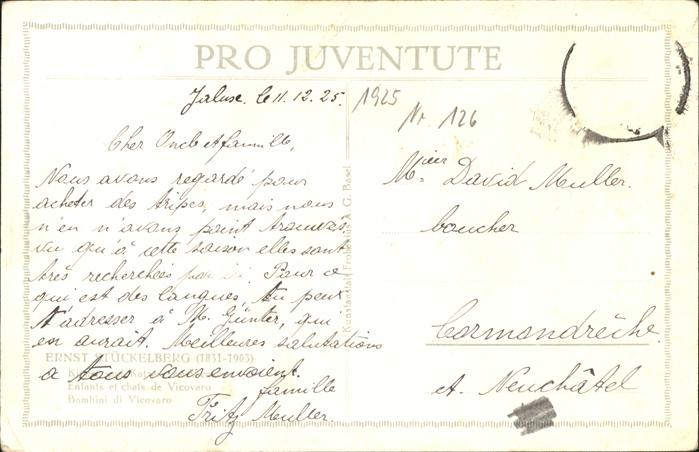 PRO JUVENTUTE
Jaluse. le 11.12.25.
1925
Nr. 126
Cher Oncle et famille,
Nous avons regardé pour
acheter des tripes, mais nous
n'en n'avons point trouvées
vu qu'à cette saison elles sont
très recherchées Pour ce
qui est des langues, tu peux
t'adresser à M. Günter, qui
en aurait. Meilleures salutations
a tous vous envoient.
famille
Fritz Muller.
ERNST STÜCKELBERG (1831-1903)
Enfants et chats de Vicovaro
Bambini di Vicovaro
Kunstanstalt Frobenius A. G. Basel
Msieur David Muller.
boucher
Cormondrèche.
ct. Neuchâtel